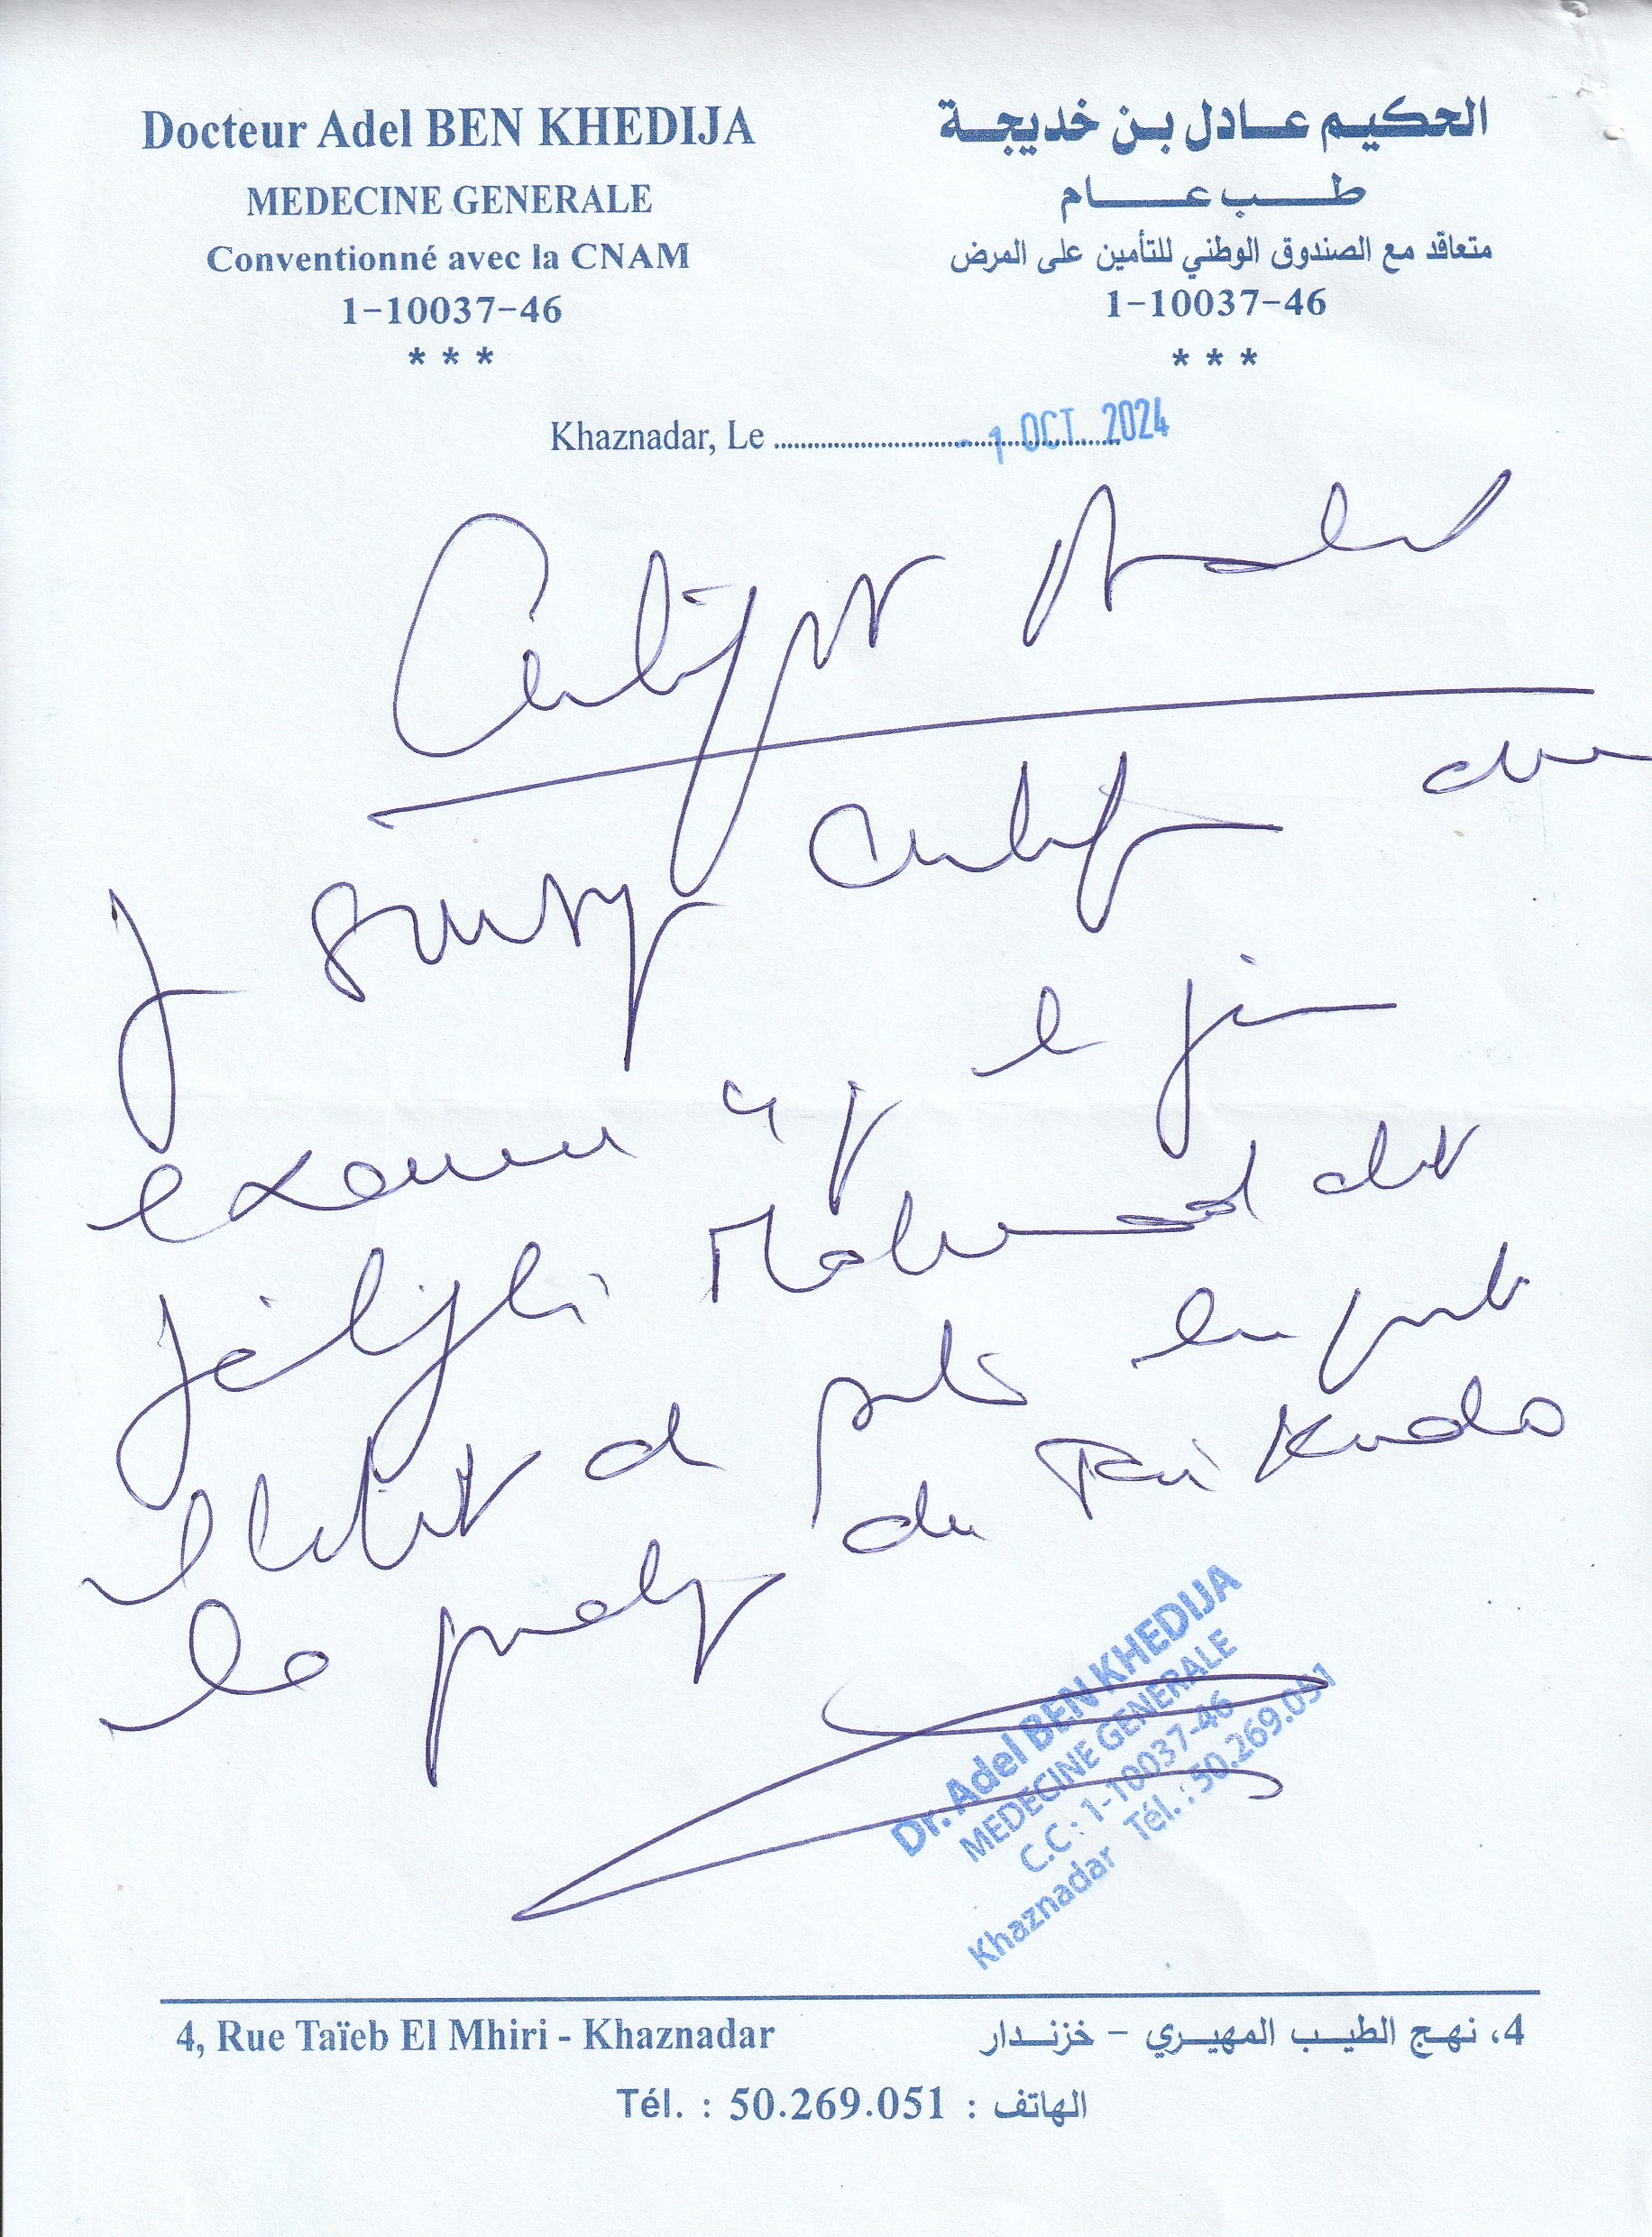 Docteur Adel BEN KHEDIJA
MEDECINE GENERALE
Conventionné avec la CNAM
1-10037-46
* * *
الحكيم عادل بن خديجة
طب عام
متعاقد مع الصندوق الوطني للتأمين على المرض
1-10037-46
* * *
Khaznadar, Le - 1 OCT. 2024
Certificat Médical
Je soussigné Certifie avoir
examiné ce jour le jeune
Mohamed dit
de
la pratique du Taikondo
Dr. Adel BEN KHEDIJA
MEDECINE GENERALE
C.C : 1-10037-46
Khaznadar Tél. : 50.269.051
4, Rue Taïeb El Mhiri - Khaznadar
4، نهج الطيب المهيري - خزندار
Tél. : 50.269.051 : الهاتف